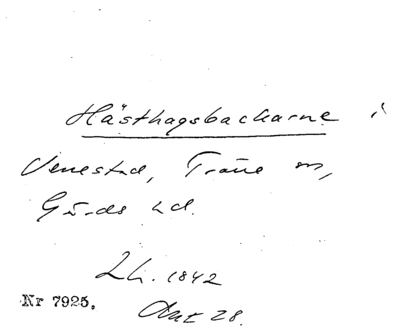 Hästhagsbackarne i
Venestad, Träne sn,
Gärds hd.
Lh. 1842
Akt 28.
Nr 7925.